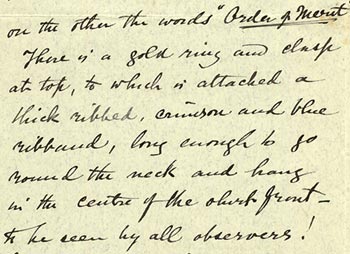 on the other the words "Order of Merit"
There is a gold ring and clasp
at top, to which is attached a
thick ribbed, crimson and blue
ribband, long enough to go
round the neck and hang
in the centre of the shirt front –
to be seen by all observers!